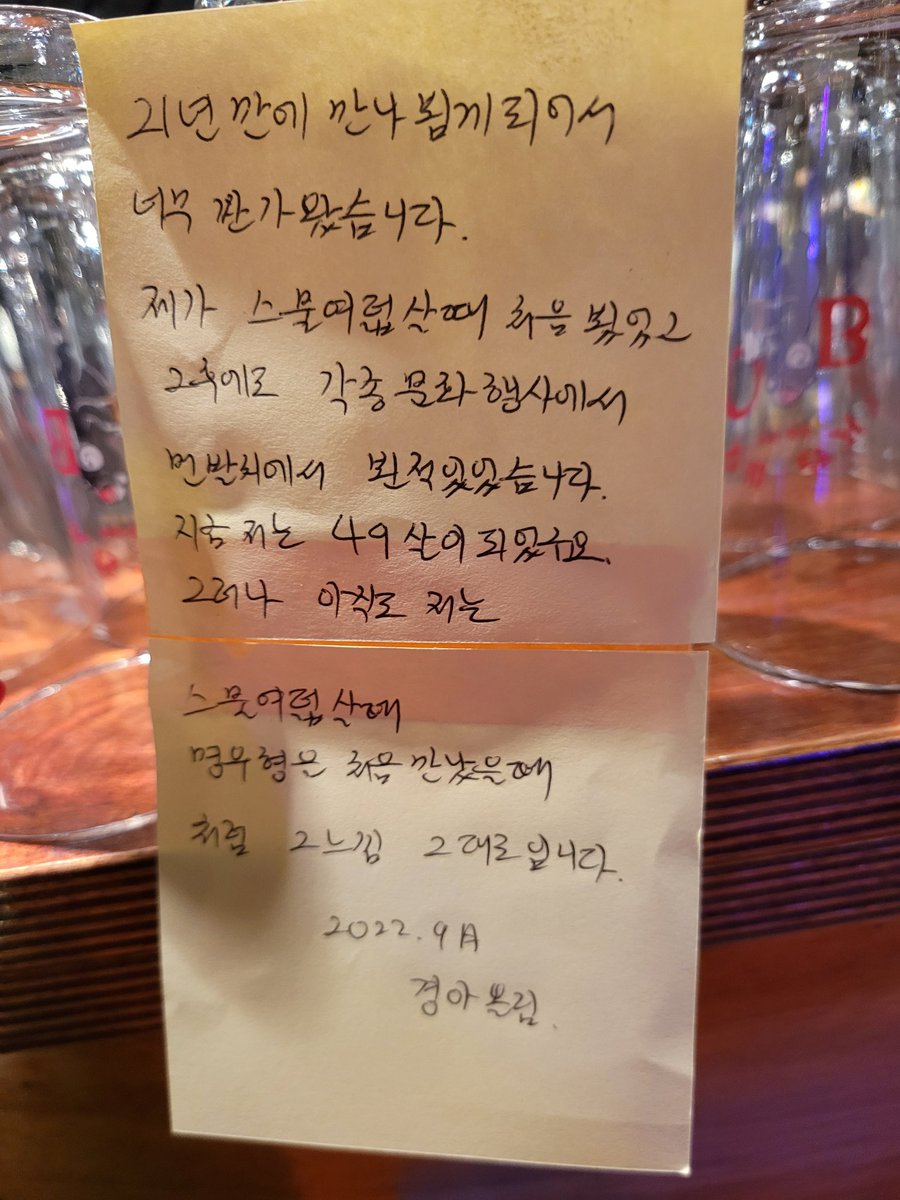 21년 만에 만나 뵙게 되어서
너무 반가왔습니다.
제가 스물여덟살때 처음 뵜었고
그후에도 각종 문화행사에서
먼발치에서 뵌적있었습니다.
지금 저는 49살이 되었구요.
그러나 아직도 저는
스물여덟살때
명우형을 처음 만났을때
처럼 그느낌 그대로입니다.
2022. 9月
경아올림.
B
U B